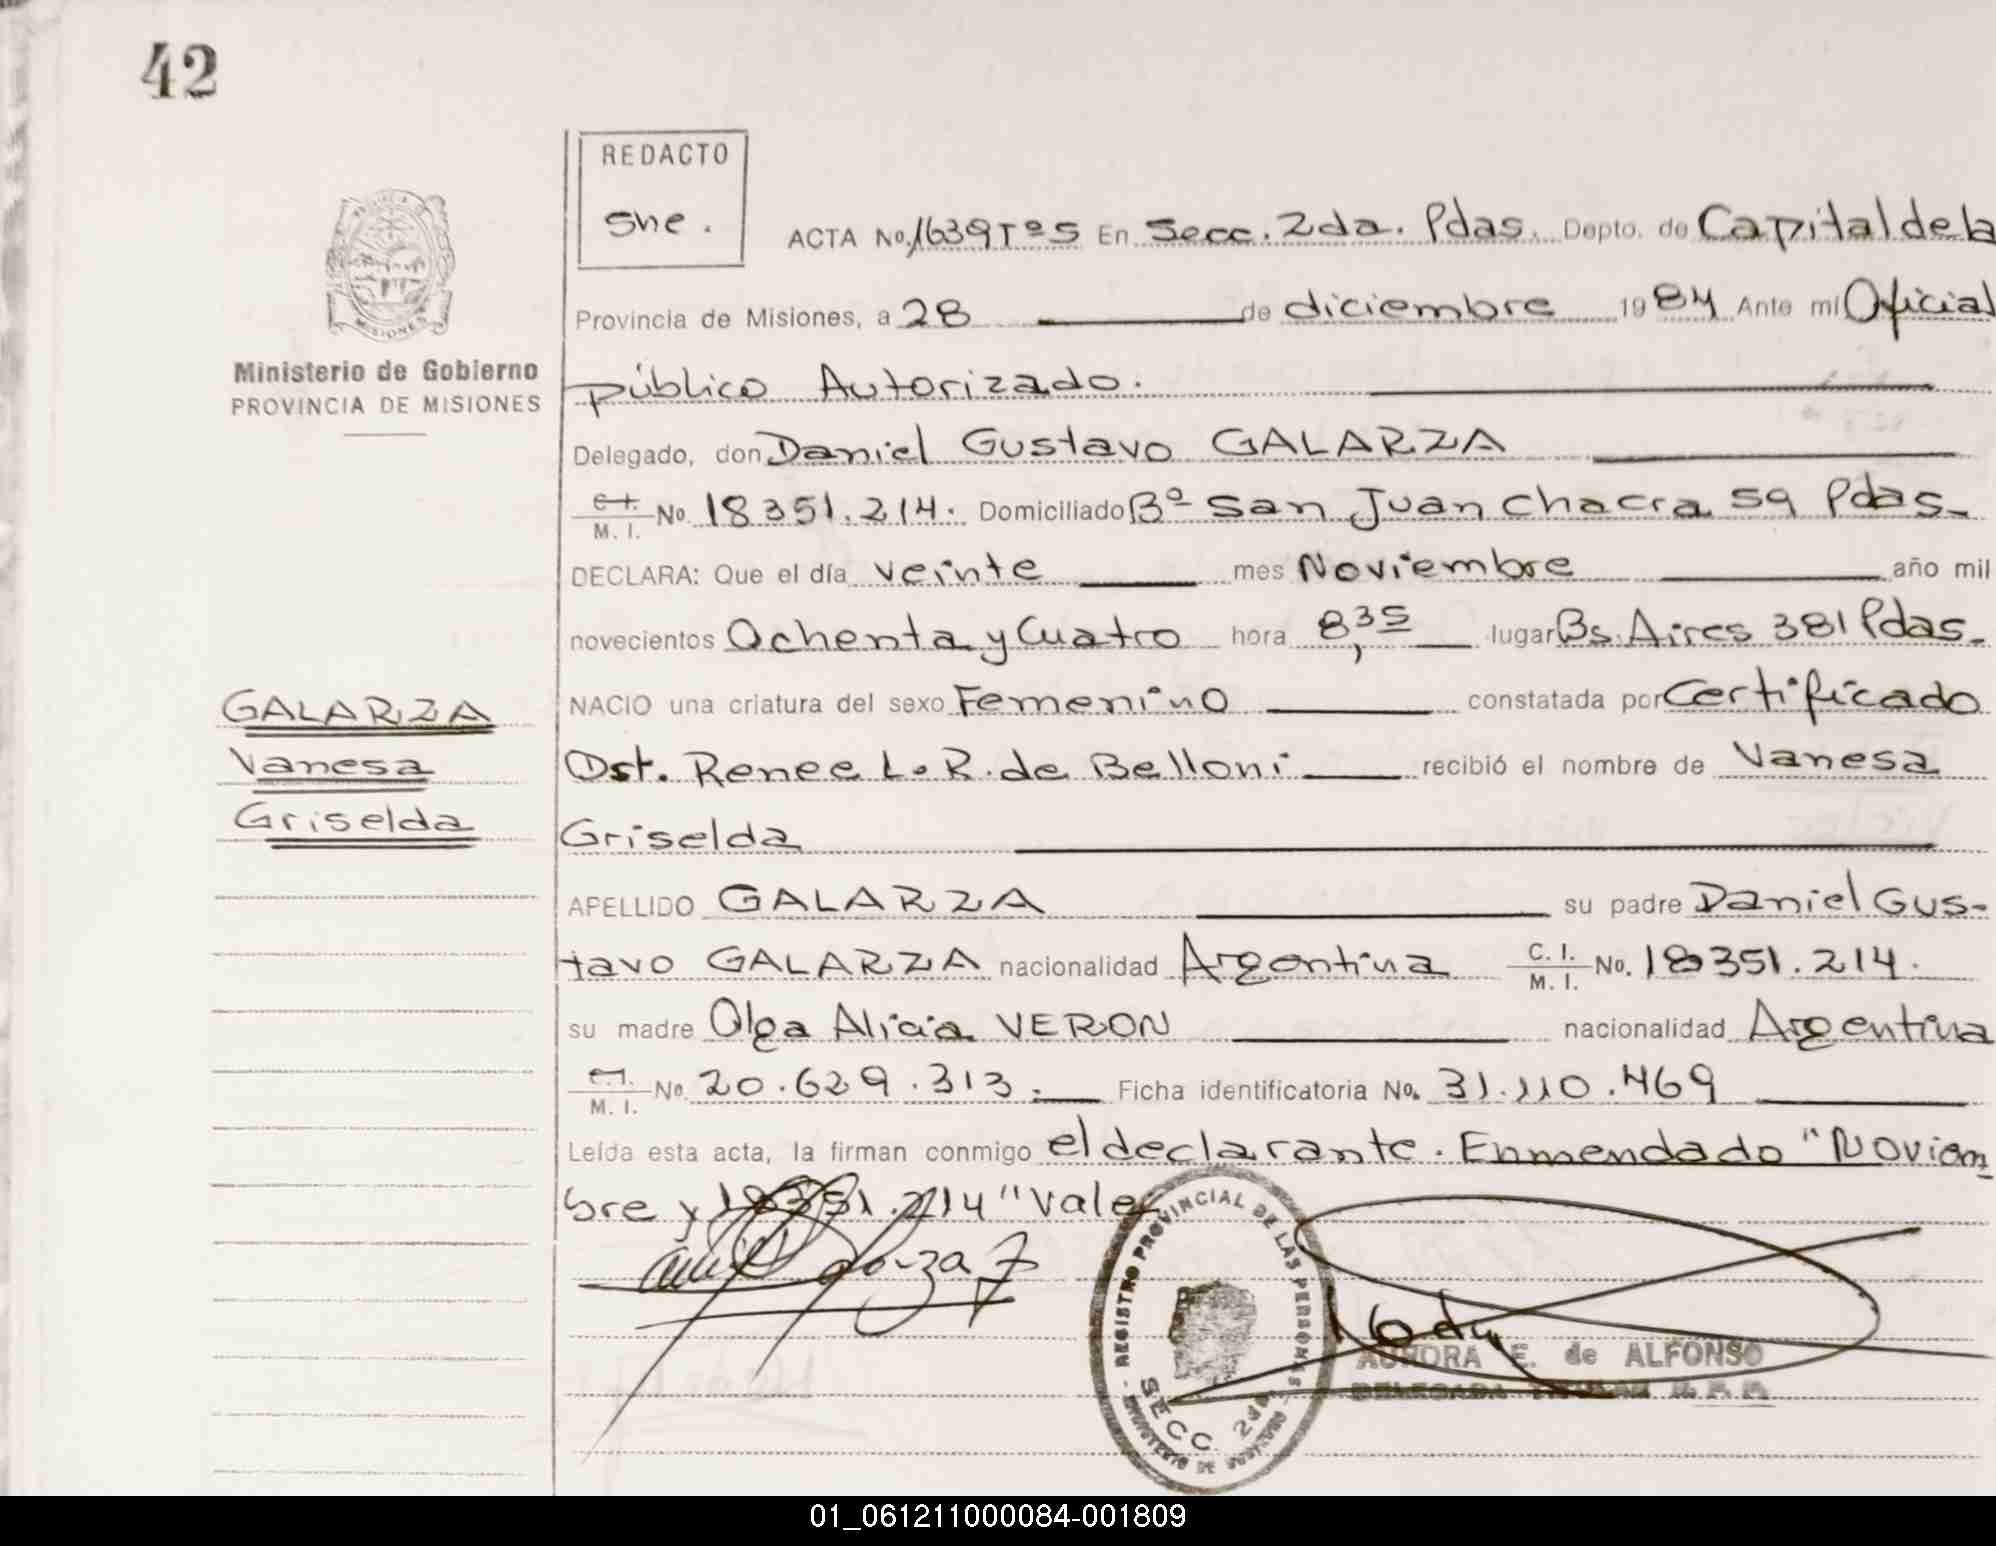 42
REDACTO
Sne.
ACTA No. 1639 Tº 5 En Secc. 2da. Pdas. Depto. de Capital de la
Provincia de Misiones, a 28 de diciembre 1984 Ante mí Oficial
Ministerio de Gobierno
PROVINCIA DE MISIONES
MISIONES
público Autorizado.
Delegado, don Daniel Gustavo GALARZA
C.I. M. I. No. 18351.214. Domiciliado Bº San Juan Chacra 59 Pdas.
DECLARA: Que el día veinte mes Noviembre año mil
novecientos Ochenta y Cuatro hora 8,35 lugar Bs. Aires 381 Pdas.
NACIO una criatura del sexo Femenino constatada por Certificado
GALARZA
Vanesa
Griselda
Ost. Renee L. R. de Belloni recibió el nombre de Vanesa
Griselda
APELLIDO GALARZA su padre Daniel Gus-
tavo GALARZA nacionalidad Argentina C. I. M. I. No. 18351.214.
su madre Olga Alicia VERON nacionalidad Argentina
C.I. M. I. No. 20.629.313. Ficha identificatoria No. 31.110.469
Leída esta acta, la firman conmigo el declarante. Enmendado "Noviem
bre y 18351.214" Vale
REGISTRO PROVINCIAL DE LAS PERSONAS
SECC. 2da
AURORA E. de ALFONSO
DELEGADA
01_061211000084-001809